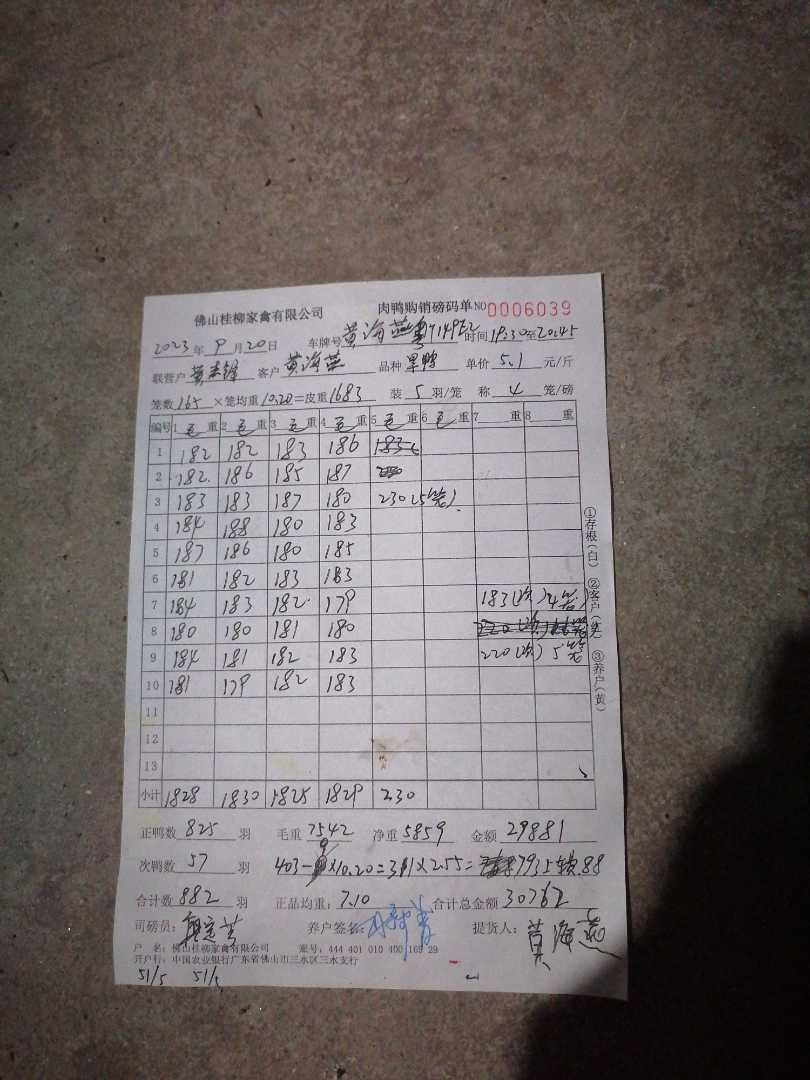 佛山桂柳家禽有限公司 肉鸭购销磅码单 NO 0006039
2023年9月20日 车牌号 黄海燕 时间 19:30至20:45
联营户 客户 黄海燕 品种 单价 5.1 元/斤
笼数 165 ×笼均重 10.20 =皮重 1683 装 5 羽/笼 称 4 笼/磅
编号 1 毛 重 2 毛 重 3 毛 重 4 毛 重 5 毛 重 6 毛 重 7 重 8 重
1 182 182 183 186
2 182 186 185 187
3 183 183 187 180 230(5笼)
4 184 188 180 183
5 187 186 180 185
6 181 182 183 183
7 184 183 182 179 183(次)4笼)
8 180 180 181 180
9 184 181 182 183 220(次)5笼
10 181 179 182 183
11
12
13
小计 1828 1830 1825 1829 230
①存根(白) ②客户(红) ③养户(黄)
正鸭数 825 羽 毛重 7542 净重 5859 金额 29881
次鸭数 57 羽 403- ×10.20=311×2.55= 88
合计数 882 羽 正品均重: 7.10 合计总金额 30762
司磅员: 养户签名: 提货人: 黄海燕
户 名: 佛山桂柳家禽有限公司 账号: 444 401 010 400 169 29
开户行: 中国农业银行广东省佛山市三水区三水支行
51/5 51/5